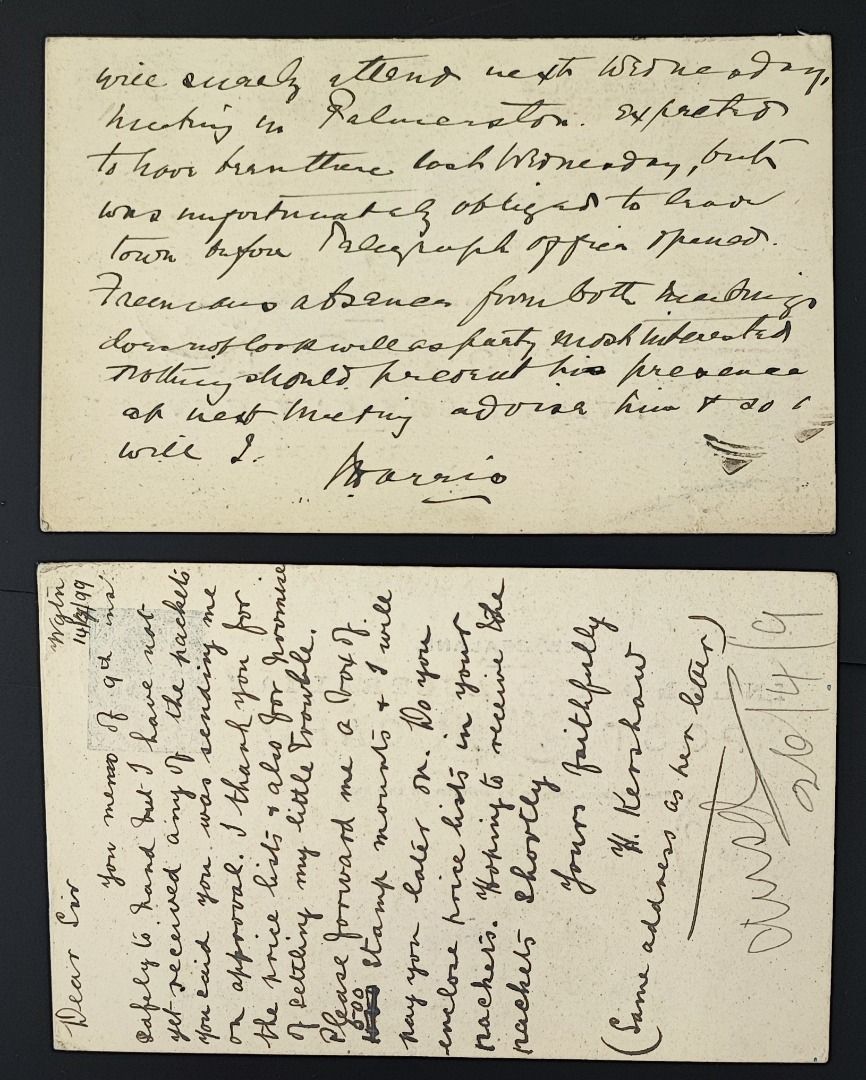 will surely attend next Wednesday,
Meeting in Palmerston. Expected
to have been there last Wednesday, but
was unfortunately obliged to leave
town before Telegraph office opened.
Freemans absence from both meetings
does not look well as party most interested
Nothing should prevent his presence
at next Meeting advise him & so
will I.
Harris
Wgtn
14/4/99
Dear Sir
you memo of 9th ins
safely to hand but I have not
yet received any of the packets
you said you was sending me
on approval. I thank you for
the price lists & also for promise
of settling my little trouble.
Please forward me a box of
500 stamp mounts & I will
pay you later on. Do you
enclose price lists in your
packets. Hoping to receive the
packets shortly
Yours faithfully
H. Kershaw
(Same address as per letter)
26/4/9